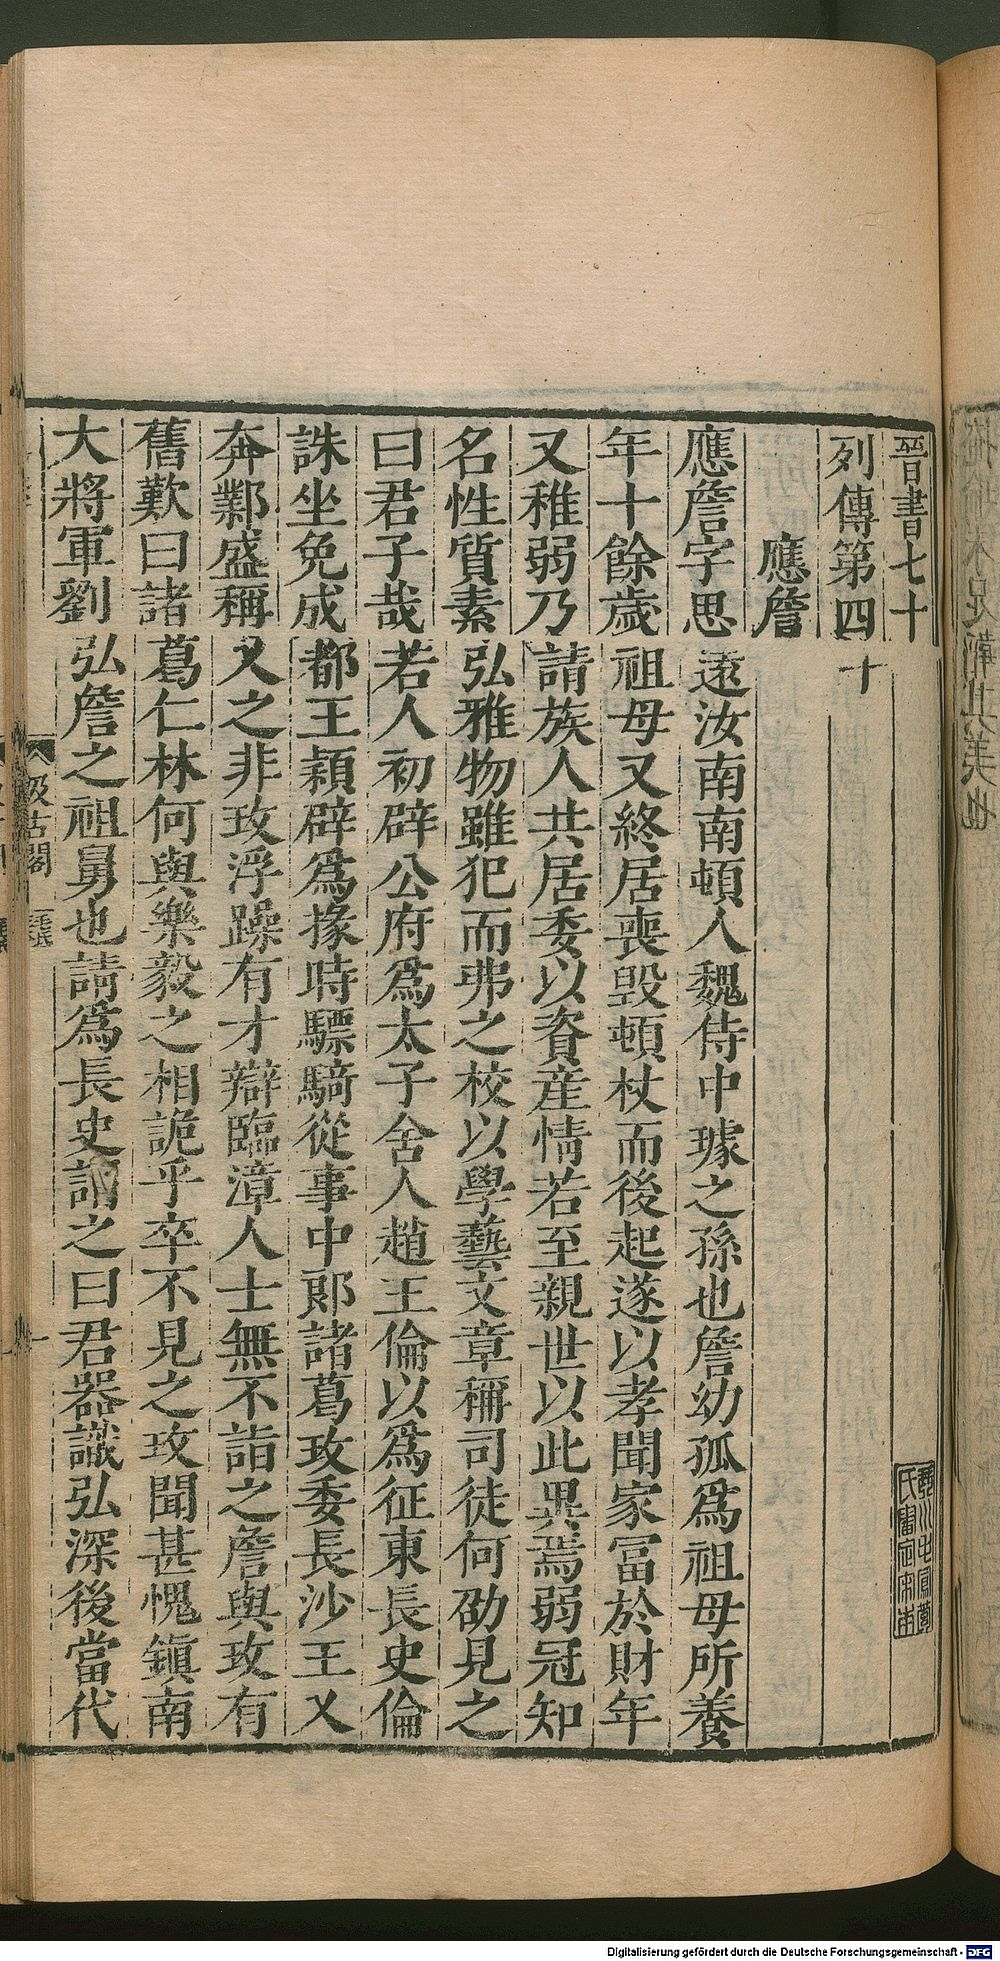 晉書七十
列傳第四十
應詹
應詹字思遠汝南南頓人魏侍中璩之孫也詹幼孤爲祖母所養
年十餘歲祖母又終居喪毀頓杖而後起遂以孝聞家富於財年
又稚弱乃請族人共居委以資産情若至親世以此異焉弱冠知
名性質素弘雅物雖犯而弗之校以學藝文章稱司徒何劭見之
曰君子哉若人初辟公府爲太子舍人趙王倫以爲征東長史倫
誅坐免成都王穎辟爲掾時驃騎從事中郞諸葛玫委長沙王乂
奔鄴盛稱乂之非玫浮躁有才辯臨漳人士無不詣之詹與玫有
舊歎曰諸葛仁林何與樂毅之相詭乎卒不見之玫聞甚愧鎭南
大將軍劉弘詹之祖舅也請爲長史謂之曰君器識弘深後當代
汲古閣
Digitalisierung gefördert durch die Deutsche Forschungsgemeinschaft - DFG